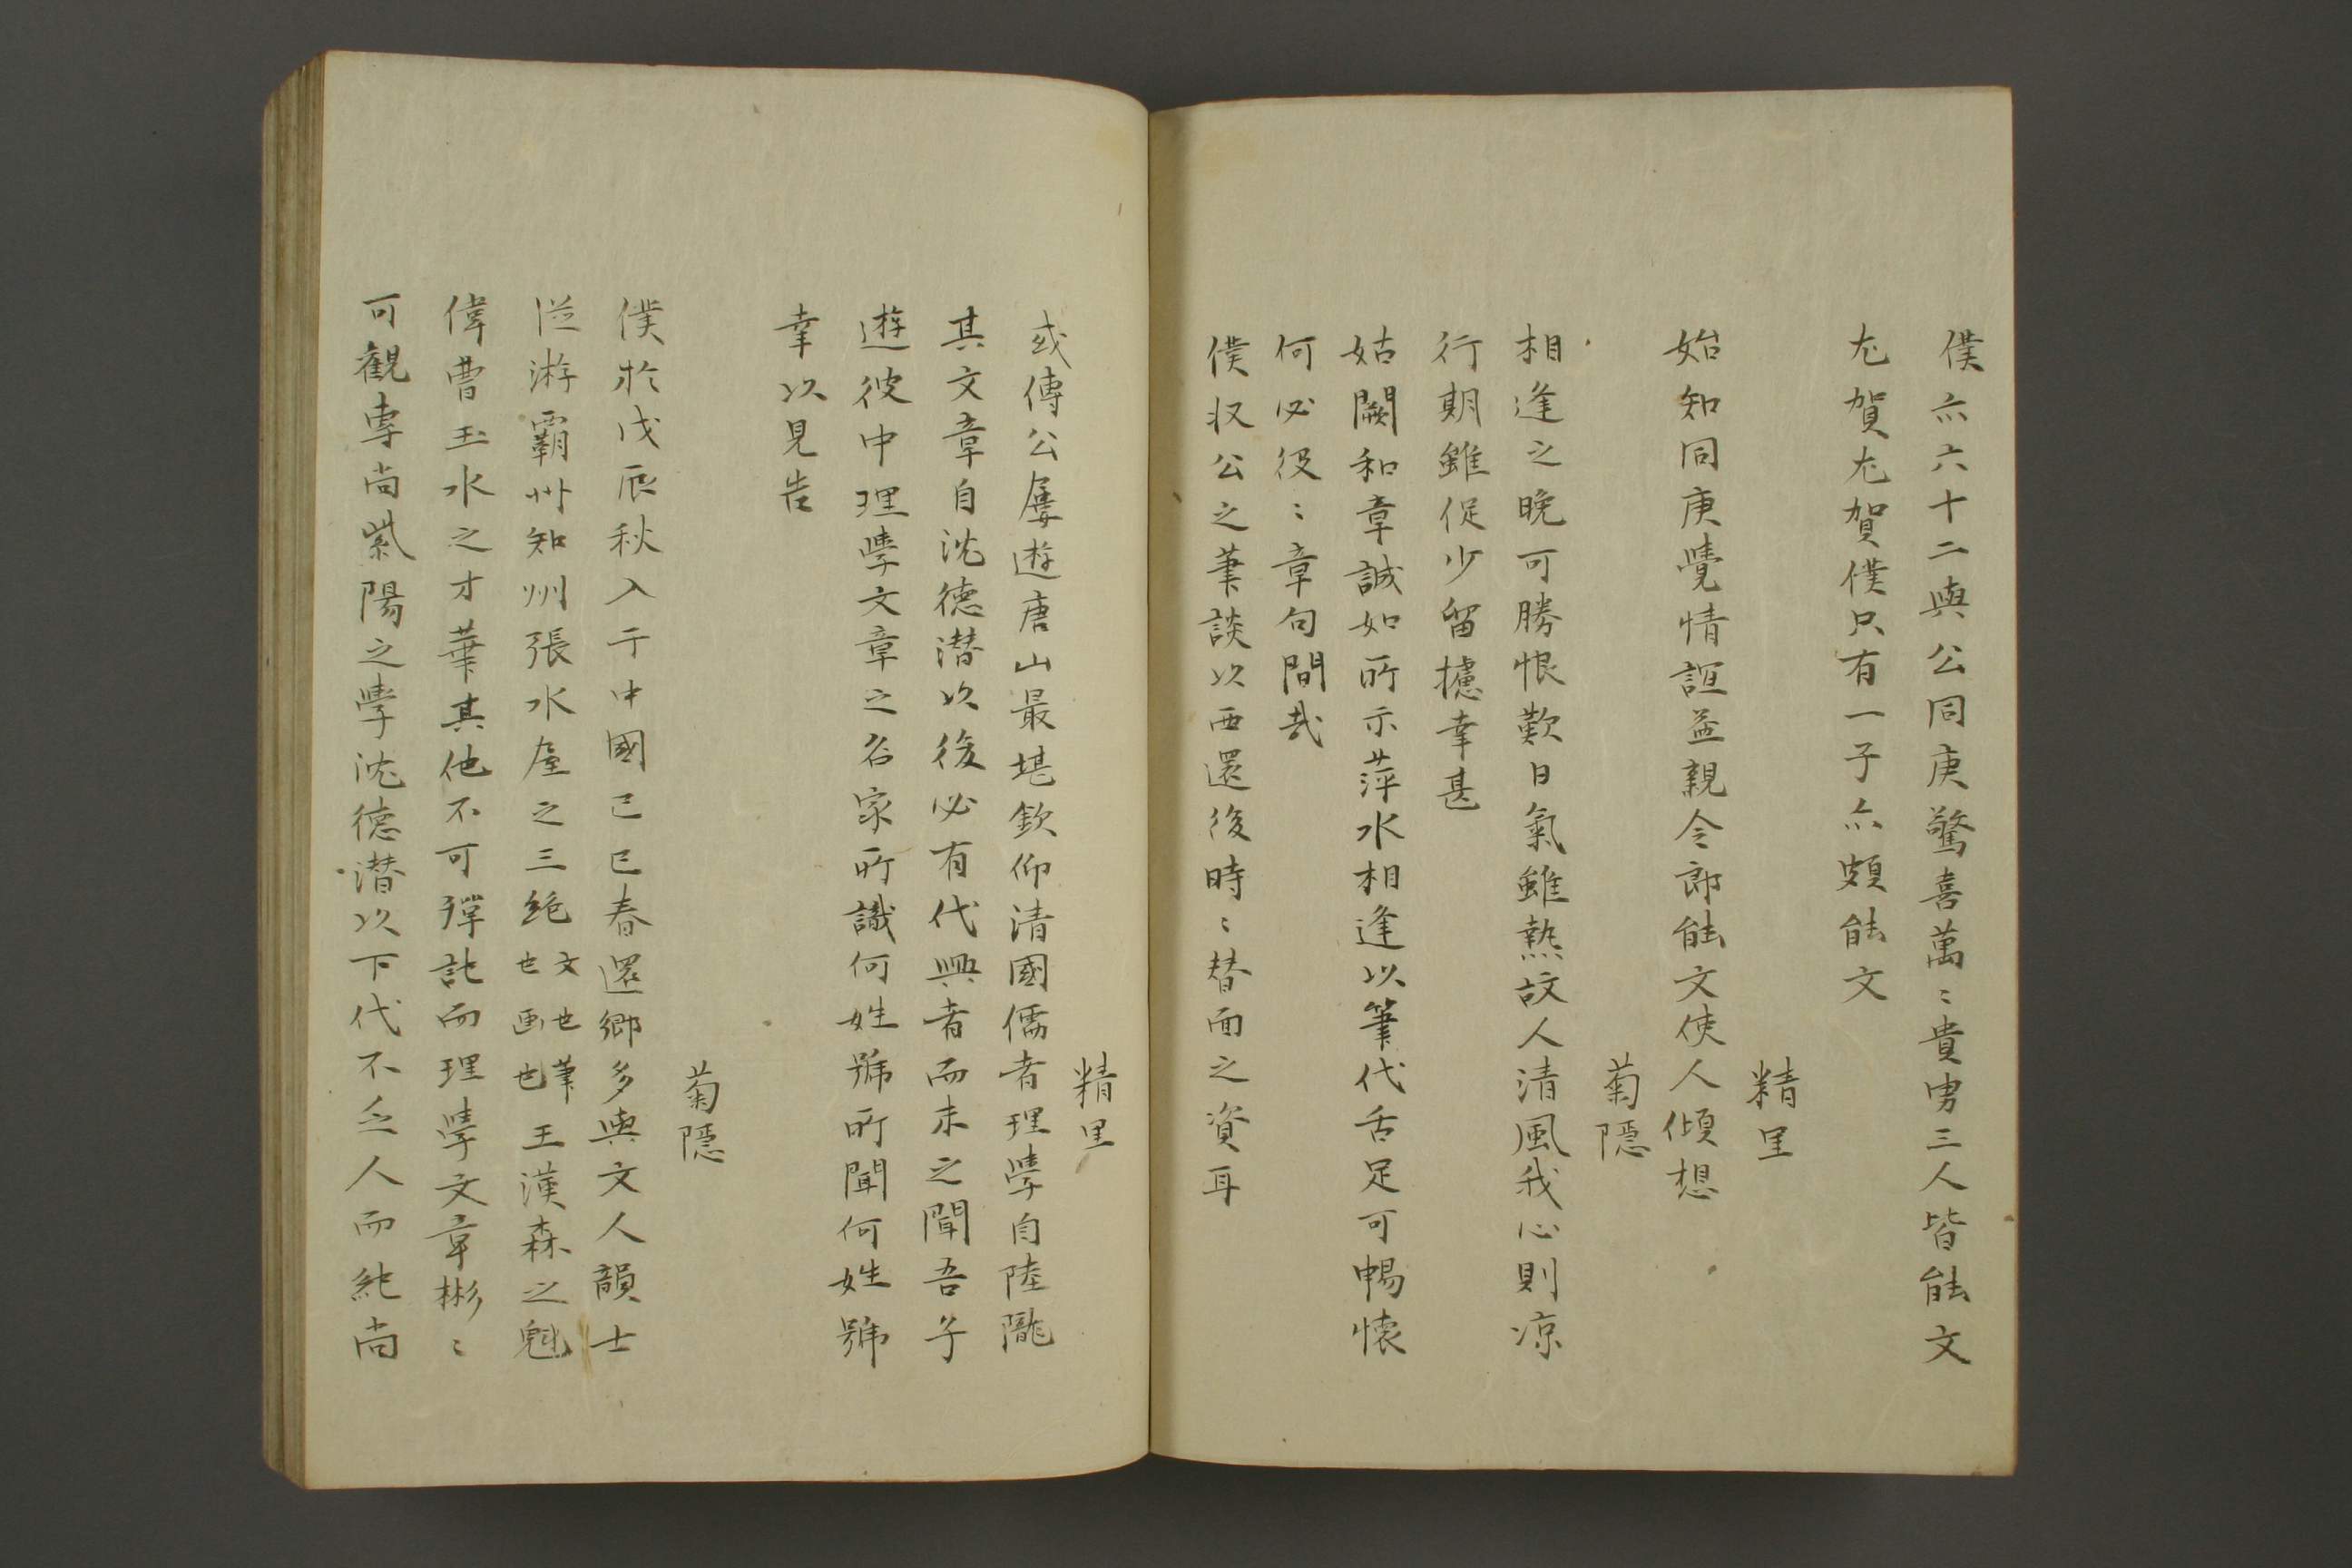 僕亦六十二與公同庚驚喜萬〻貴男三人皆能文
尤賀尤賀僕只有一子亦頗能文
精里
始知同庚覺情誼益親令郎能文使人傾想
菊隱
相逢之晚可勝恨歎日氣雖熱訪人清風我心則凉
行期雖促少留攄幸甚
姑闕和章誠如所示萍水相逢以筆代舌足可暢懷
何必役〻章句間哉
僕収公之筆談以西還後時〻替面之資耳
精里
或傳公屢遊唐山最堪欽仰清國儒者理學自陸隴
其文章自沈德潜以後必有代興者而未之聞吾子
遊彼中理學文章之名家所識何姓號所聞何姓號
幸以見告
菊隱
僕於戊辰秋入于中國己巳春還鄉多與文人韻士
從游霸州知州張水屋之三絶文也筆也画也王漢森之魁
偉曹玉水之才華其他不可殫記而理學文章彬〻
可觀専尚紫陽之學沈德潜以下代不乏人而純尚